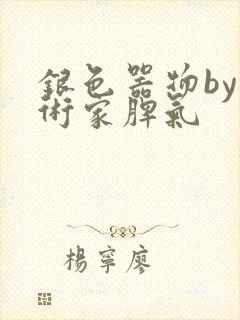 銀色器物by
術家脾氣
楊寧廖